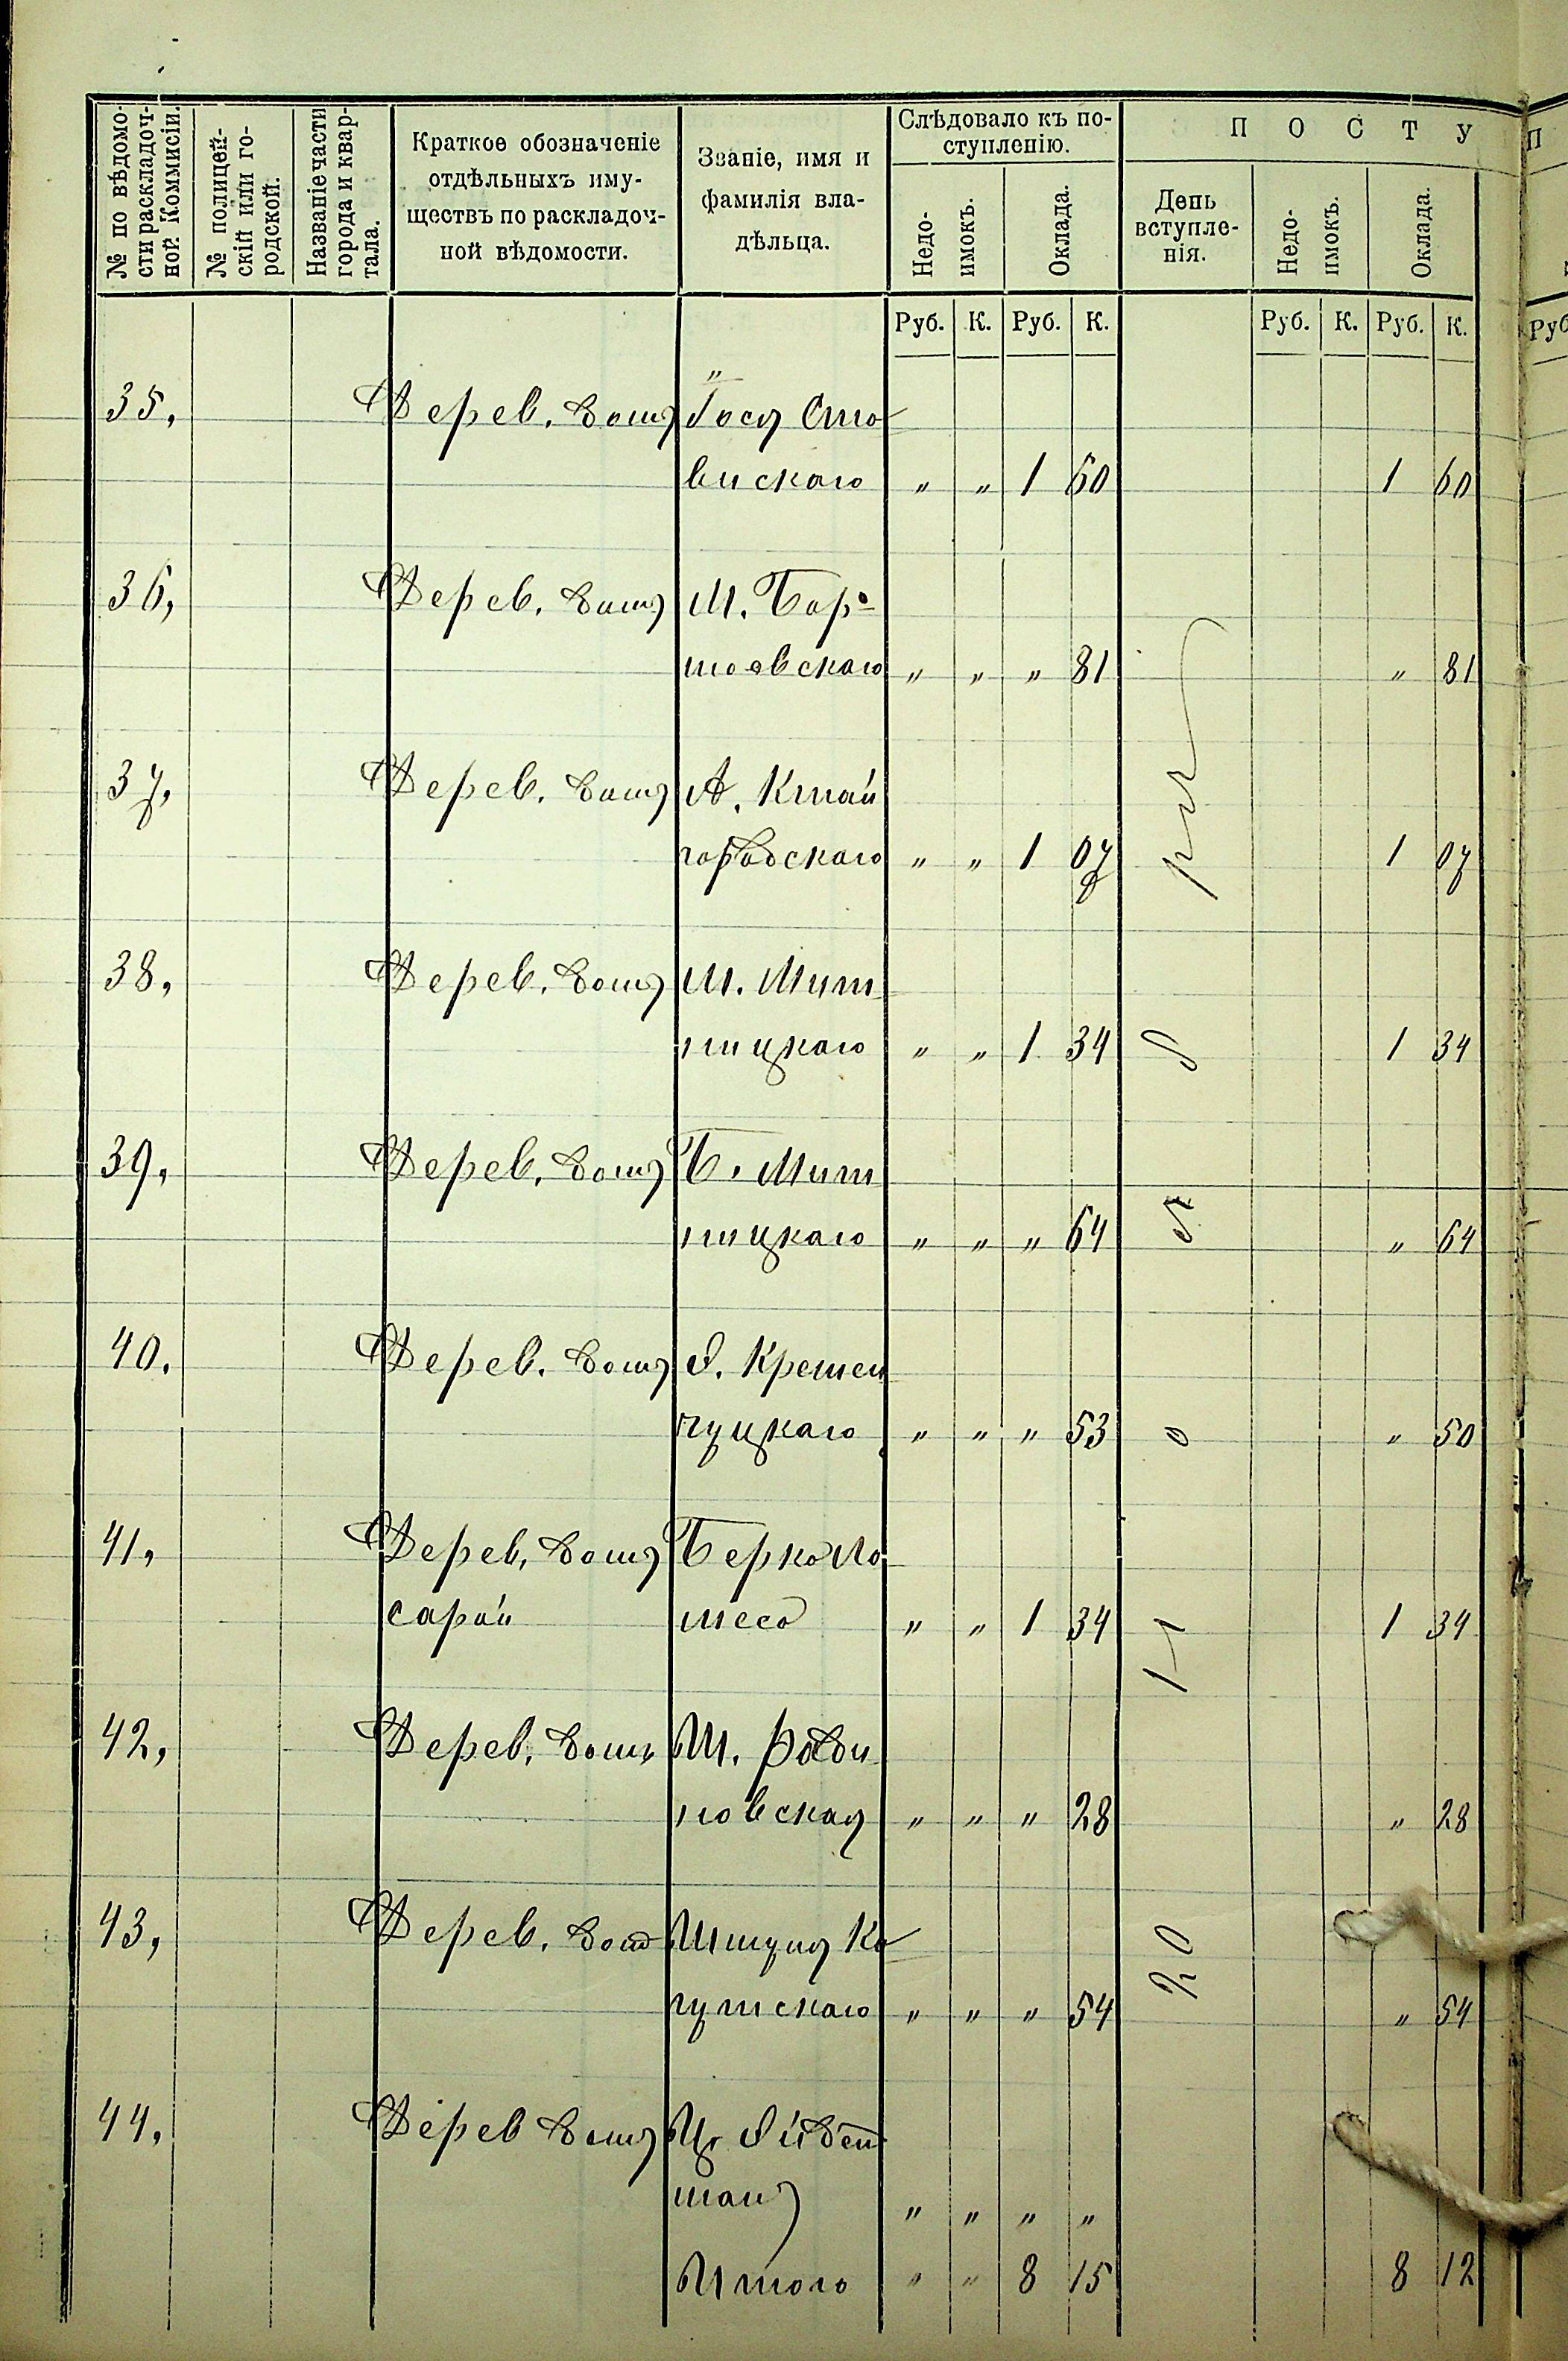 № по вѣдомо-
сти раскладоч-
ной Коммисіи.
№ полицей-
скій или го-
родской.
Названіе части
города и квар-
тала.
Краткое обозначеніе
отдѣльныхъ иму-
ществъ по раскладоч-
ной вѣдомости.
Званіе, имя и
фамилія вла-
дѣльца.
Слѣдовало къ по-
ступленію.
Недо-
имокъ.
Оклада.
П О С Т У П
День
вступле-
нія.
Недо-
имокъ.
Оклада.
Руб. К. Руб. К. Руб. К. Руб. К. Руб
35, Дерев. домъ
вискаго " " 1 60 1 60
36, Дерев. домъ М. Бор-
" " " 81 " 81
37, Дерев. домъ А. Китай
городскаго " " 1 07 1 07
38, Дерев. домъ М. Мит
ницкаго " " 1 34 1 34
39, Дерев. домъ Б. Мит
ницкаго " " " 64 " 64
40. Дерев. домъ Кремен
чуцкаго " " " 53 " 50
41, Дерев. домъ Берко
сарай " " 1 34 1 34
42, Дерев. домъ Ш.
новская " " " 28 " 28
43, Дерев. дом
" " " 54 " 54
44, Дерев домъ
ман " " " "
Итого " " 8 15 8 12
20